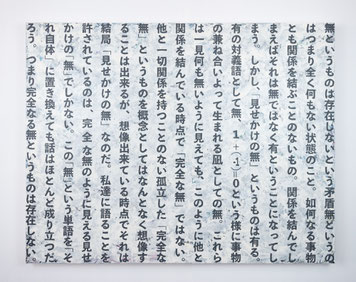 無というものは存在しないという矛盾無というの
はつまり全く何もない状態のこと。如何なる事物
とも関係を結ぶことのないもの。関係を結んでし
まえばそれは無ではなく有ということになってし
まう。しかし、「見せかけの無」というものは有る。
有の対義語として無、1+(-1)=0という様に事物
の兼ね合いよって生まれる凪としての無。これら
は一見何も無いように見えても、このように他と
関係を結んでいる時点で「完全な無」ではない。
他と一切関係を持つことのない孤立した「完全な
無」というものを概念としてはなんとなく想像す
ることは出来るが、想像出来ている時点でそれは
結局「見せかけの無」なのだ。私達に語ることを
許されているのは、完全な無のように見える見せ
かけの「無」でしかない。この「無」という単語を「そ
れ自体」に置き換えても話はほとんど成り立つだ
ろう。つまり完全なる無というものは存在しない。